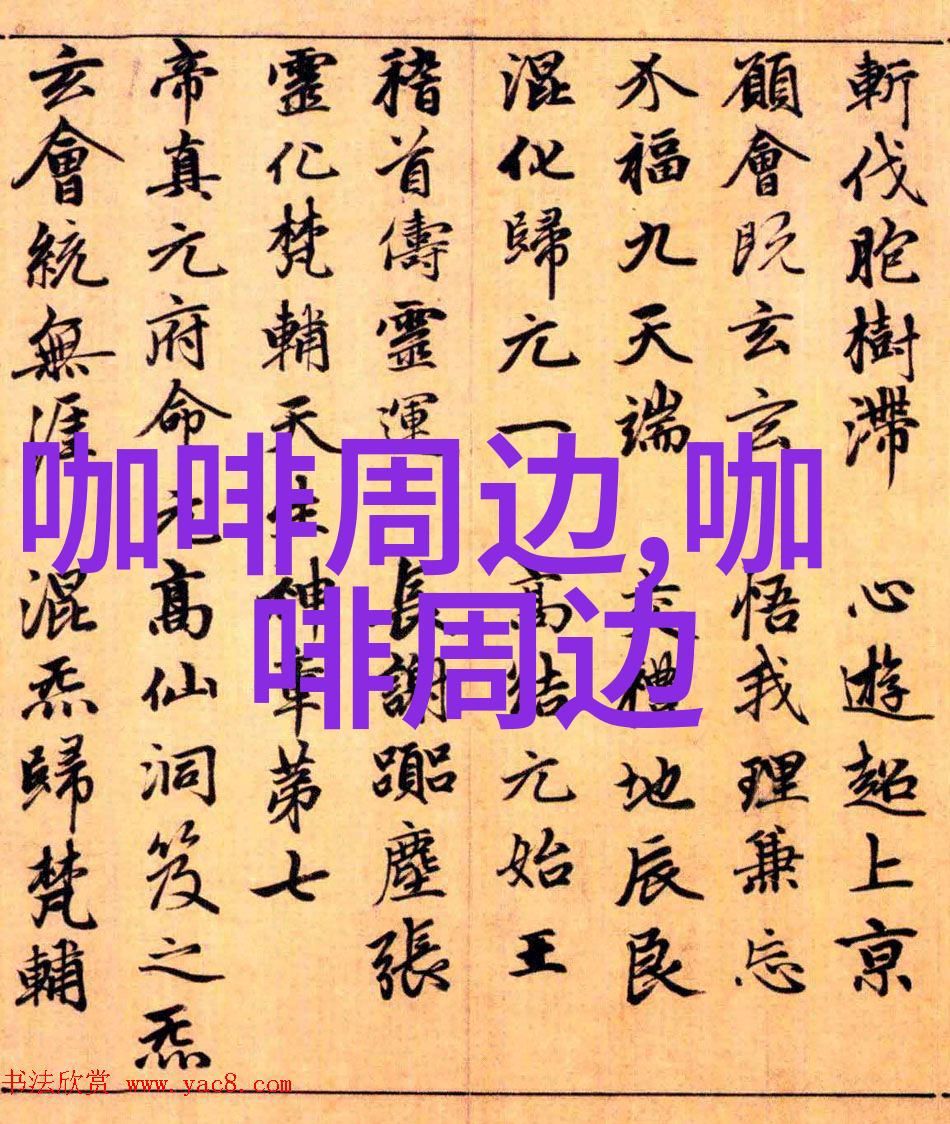 斬伐胞樹滯 心遊超上京
願會既玄玄 悟我理兼忘
福九天端 禮地辰良
混化歸元一 高結元始王
稽首儔靈運 長謝躡塵張
靈化梵輔天生神章第七
帝真元府命元高仙洞笈之炁
玄會統無涯混炁歸梵輔
咖啡周边,咖
啡周边
书法欣赏 www.yac8.com